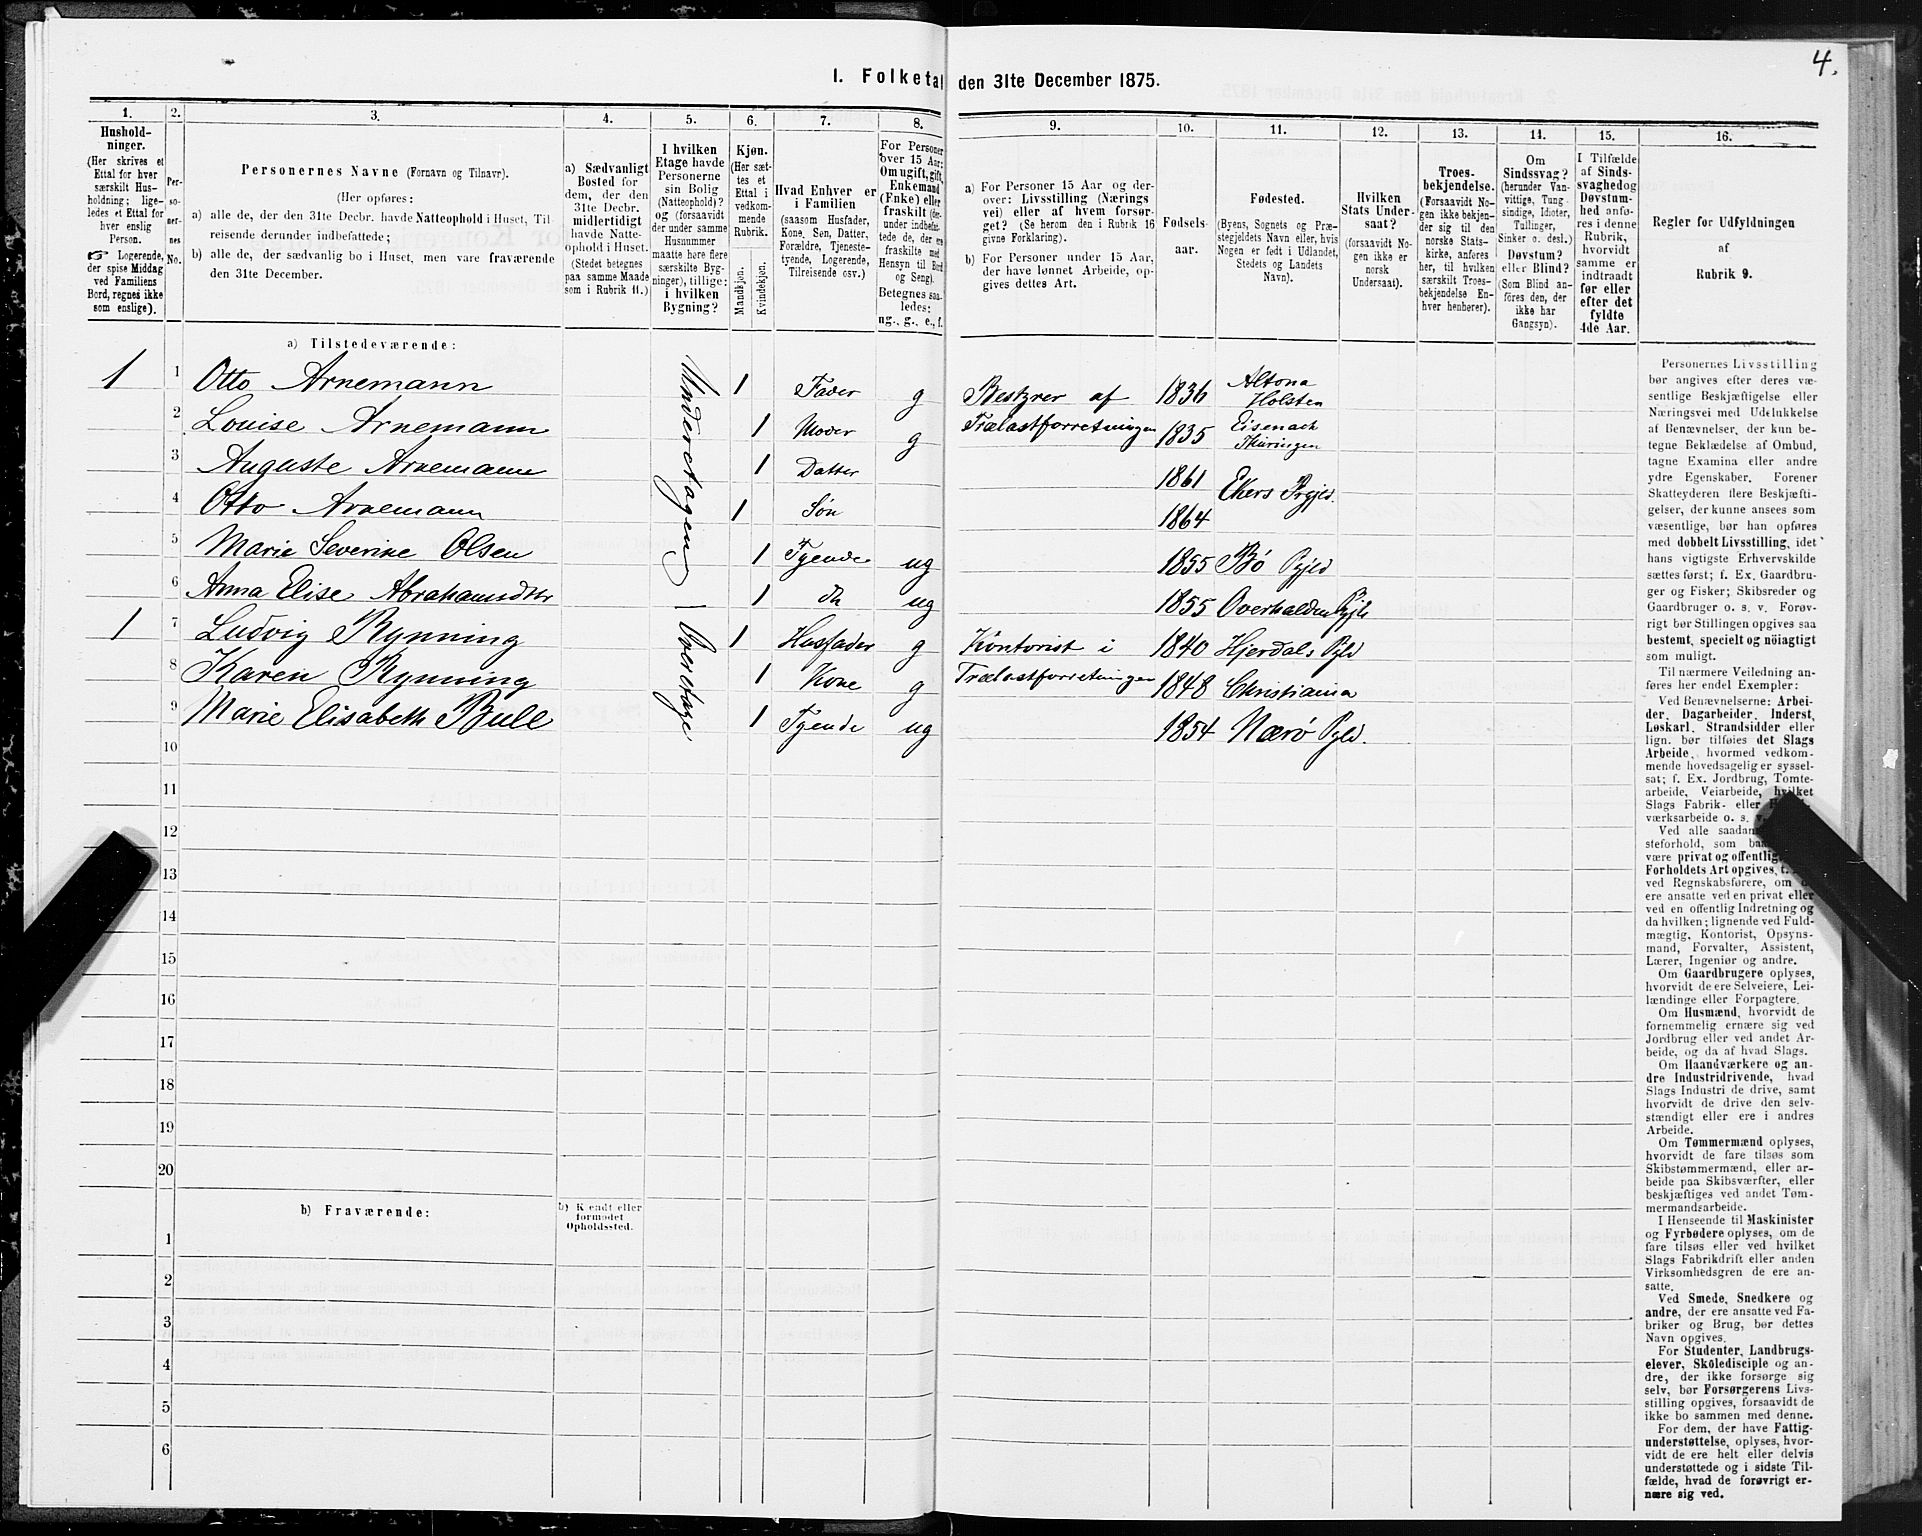 4.
I. Folketal den 31te December 1875.
1. 2. 3. 4. 5. 6. 7. 8. 9. 10. 11. 12. 13. 14. 15. 16.
Husholdninger.
(Her skrives et
Ettal for hver
særskilt Husholdning; ligeledes
et Ettal for
hver enslig
Person.
☞ Logerende,
der spise Middag
ved Familiens
Bord, regnes ikke
som enslige).
Personernes No.
Personernes Navne (Fornavn og Tilnavn).
(Her opføres:
a) alle de, der den 31te Decbr. havde Natteophold i Huset, Tilreisende
derunder indbefattede;
b) alle de, der sædvanlig bo i Huset, men vare fraværende
den 31te December.
a) Sædvanligt
Bosted for
dem, der den
31te Decbr.
midlertidigt
havde Natteophold
i Huset.
(Stedet betegnes
paa samme Maade
som i Rubrik 11.)
I hvilken
Etage havde
Personerne
sin Bolig
(Natteophold)?
og (forsaavidt
der under samme
Husnummer
maatte høre flere
særskilte Bygninger),
tillige:
i hvilken
Bygning?
Kjøn.
(Her sættes
et
Ettal i
vedkommende
Rubrik.
Mandkjøn.
Kvindekjøn.
Hvad Enhver er
i Familien
(saasom Husfader,
Kone, Søn, Datter,
Forældre, Tjenestetyende,
Logerende,
Tilreisende osv.)
For Personer
over 15 Aar:
Om ugift, gift,
Enkemand
(Enke) eller
fraskilt (derunder
indbefattede
de, der ere
fraskilte med
Hensyn til Bord
og Seng).
Betegnes saaledes:
ug., g., e., f.
a) For Personer 15 Aar og derover:
Livsstilling (Nærings
vei) eller af hvem forsørget?
(Se herom den i Rubrik 16
givne Forklaring).
b) For Personer under 15 Aar,
der have lønnet Arbeide, opgives
dettes Art.
Fødselsaar.
Fødested.
(Byens, Sognets og Præstegjeldets
Navn eller, hvis
Nogen er født i Udlandet,
Stedets og Landets
Navn).
Hvilken
Stats Undersaat?
(forsaavidt Nogen
ikke er
norsk
Undersaat).
Troesbekjendelse.
(Forsaavidt Nogen
ikke bekjender
sig til den
norske Statskirke,
anføres
her, til hvilken
særskilt Troesbekjendelse
Enhver
henhører).
Om
Sindssvag?
(herunder Vanvittige,
Tungsindige,
Idioter,
Tullinger,
Sinker o. desl.)
Døvstum?
eller Blind?
(Som Blind anføres
den, der
ikke har
Gangsyn).
I Tilfælde
af Sindssvaghed
og
Døvstumhed
anføres
i denne
Rubrik,
hvorvidt
samme er
indtraadt
før eller
efter det
fyldte
4de Aar.
Regler for Udfyldningen
af
Rubrik 9.
a) Tilstedeværende:
1 1 Otto Arnemann Underetagen 1 Fader g Bestyrer af 1836 Altona Holsten
2 Louise Arnemann 1 Moder g Trælastforretningen 1835 Eisenach Thüringen
3 Auguste Arnemann 1 Datter 1861 Ekers Prgjld.
4 Otto Arnemann 1 Søn 1864
5 Marie Severine Olsen 1 Tyende ug 1855 Bø Pgjld
6 Anna Elise Abrahamsdtr 1 do ug 1855 Overhalden Pgjld
1 7 Ludvig Rynning Overetage 1 Husfader g Kontorist i 1840 Hjerdals Pgld
8 Karen Rynning 1 Kone g Trælastforretningen 1848 Christiania
9 Marie Elisabeth Bull 1 Tyende ug 1854 Nærø Pgld.
10
11
12
13
14
15
16
17
18
19
20
b) Fraværende:
b) Kjendt eller
formodet
Opholdssted.
1
2
3
4
5
6
Personernes Livsstilling
bør angives efter deres væsentlige
Beskjæftigelse eller
Næringsvei med Udelukkelse
af Benævnelser, der kun betegne
Beklædelse af Ombud,
tagne Examina eller andre
ydre Egenskaber. Forener
Skatteyderen flere Beskjæftigelser,
der kunne ansees som
væsentlige, bør han opføres
med dobbelt Livsstilling, idet
hans vigtigste Erhvervskilde
sættes først; f. Ex. Gaardbruger
og Fisker; Skibsreder og
Gaardbruger o. s. v. Forøvrigt
bør Stillingen opgives saa
bestemt, specielt og nøiagtigt
som muligt.
Til nærmere Veiledning anføres
her endel Exempler:
Ved Benævnelserne: Arbeider,
Dagarbeider, Inderst,
Løskarl, Strandsidder eller
lign. bør tilføies det Slags
Arbeide, hvormed vedkommende
hovedsagelig er sysselsat;
f. Ex. Jordbrug, Tomtearbeide,
Veiarbeide, hvilket
Slags Fabrik- eller
værksarbeide o. s. v.
Ved alle saadanne
være privat og offentligt
Forholdets Art opgives,
ved Regnskabsførere, om
ere ansatte ved en privat eller
ved en offentlig Indretning og
da hvilken; lignende ved Fuldmægtig,
Kontorist, Opsynsmand,
Forvalter, Assistent,
Lærer, Ingeniør og andre.
Om Gaardbrugere oplyses,
hvorvidt de ere Selveiere, Leilændinge
eller Forpagtere.
Om Husmænd, hvorvidt de
fornemmelig ernære sig ved
Jordbrug eller ved andet Arbeide,
og da af hvad Slags.
Om Haandværkere og andre
Industridrivende, hvad
Slags Industri de drive, samt
hvorvidt de drive den selvstændigt
eller ere i andres
Arbeide.
Om Tømmermænd oplyses,
hvorvidt de fare tilsøs som
Skibstømmermænd, eller arbeide
paa Skibsværfter, eller
beskjæftiges ved andet Tømmermandsarbeide.
I Henseende til Maskinister
og Fyrbødere oplyses, om de
fare tilsøs eller ved hvilket
Slags Fabrikdrift eller anden
Virksomhedsgren de ere ansatte.
Ved Smede, Snedkere og
andre, der ere ansatte ved Fabriker
og Brug, bør dettes
Navn opgives.
For Studenter, Landbrugselever,
Skoledisciple og andre,
der ikke forsørge sig
selv, bør Forsørgerens Livsstilling
opgives, forsaavidt de
ikke bo sammen med denne.
For dem, der have Fattigunderstøttelse,
oplyses, hvorvidt
de ere helt eller delvis
understøttede og i sidste Tilfælde,
hvad de forøvrigt ernære
sig ved.